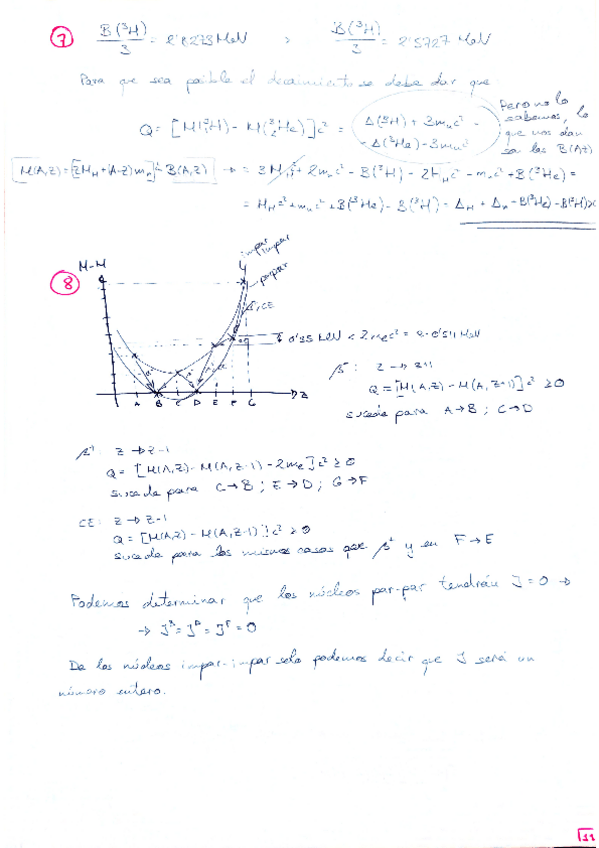 7 B(³H)/3 = 2'8273 MeV > B(³H)/3 = 2'5727 MeV
Para que sea posible el decaimiento se debe dar que
Q = [M(³₁H) - M(³₂He)]c² = Δ(³H) + 3mᵤc² - - Δ(³He) - 3mᵤc²
Pero no lo
sabemos, lo
que nos dan
son los B(A,Z)
= M_Hc² + m_nc² + B(³He) - B(³H)
8
M-M
impar
impar
par-par
CE
0'95 MeV < 2m_ec² = 2·0'511 MeV
A B C D E F G Z
β⁻: Z → Z+1
Q = [M(A,Z) - M(A,Z+1)]c² ≥ 0
sucede para A→B ; C→D
β⁺: Z → Z-1
Q = [M(A,Z) - M(A,Z-1) - 2m_e]c² ≥ 0
sucede para C→B ; E→D ; G→F
CE: Z → Z-1
Q = [M(A,Z) - M(A,Z-1)]c² ≥ 0
sucede para los mismos casos que β⁺ y en F→E
Podemos determinar que los núcleos par-par tendrán J=0 →
→ J^B = J^D = J^F = 0
De los núcleos impar-impar solo podemos decir que J será un
número entero.
11